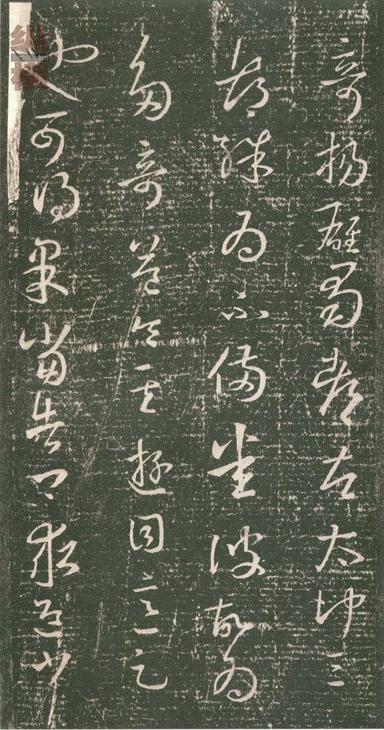 奇揚雄蜀都左太沖三
都殊為不備悉彼故為
多奇益令其遊目意足
也可得果當告卿求迎少